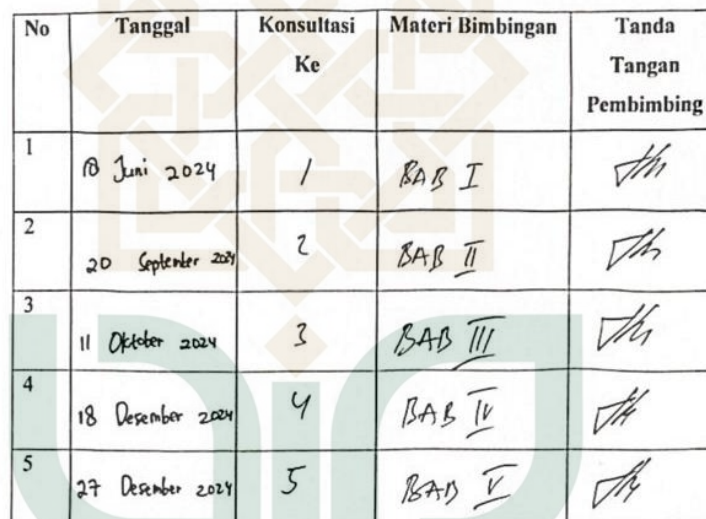 No Tanggal Konsultasi Ke Materi Bimbingan Tanda Tangan Pembimbing
1 Juni 2024 1 BAB I
2 20 September 2024 2 BAB II
3 11 Oktober 2024 3 BAB III
4 18 Desember 2024 4 BAB IV
5 27 Desember 2024 5 BAB V